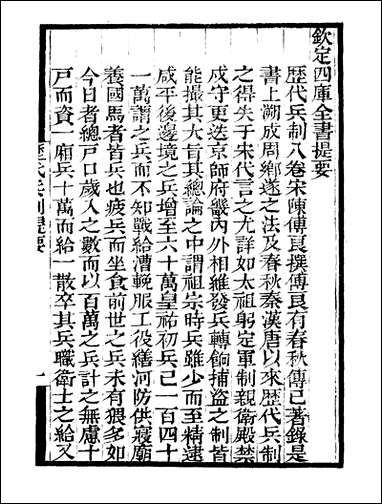 欽定四庫全書提要
歷代兵制八卷宋陳傅良撰傅良有春秋傳已著錄是
書上溯成周鄉遂之法及春秋秦漢唐以來歷代兵制
之得失于宋代言之尤詳如太祖躬定軍制親衛殿禁
戍守更迭京師府畿內外相維發兵轉餉捕盜之制皆
能撮其大旨其總論之中謂祖宗時兵雖少而至精逮
咸平後邊境之兵增至六十萬皇祐初兵已一百四十
一萬謂之兵而不知戰給漕輓服工役繕河防供寢廟
養國馬者皆兵也疲兵而坐食前世之兵未有猥多如
今日者總戶口歲入之數而以百萬之兵計之無慮十
戶而資一廂兵十萬而給一散卒其兵職衛士之給又
歷代兵制提要
一